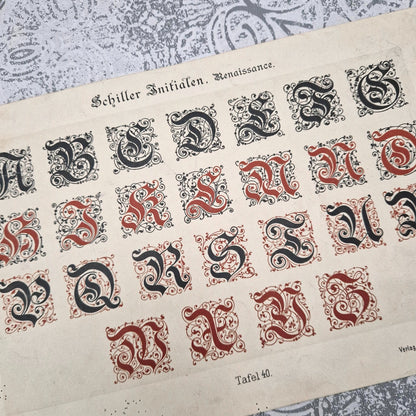 Schiller Initialen. Renaissance.
A B C D E F G
H I K L M N O
P Q R S T U V
W X Y Z
Tafel 40.
Verlag